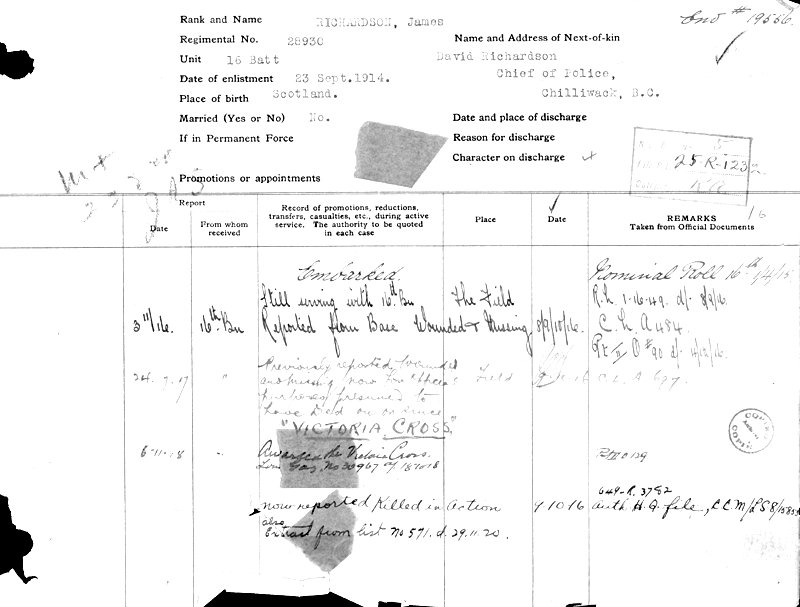 Rank and Name RICHARDSON, James
Cas # 19566.
Regimental No. 28930
Name and Address of Next-of-kin
Unit 16 Batt
David Richardson
Date of enlistment 23 Sept.1914.
Chief of Police,
Place of birth Scotland.
Chilliwack, B.C.
Married (Yes or No) No.
Date and place of discharge
If in Permanent Force
Reason for discharge
Character on discharge
25-R-123
Promotions or appointments
Report
Date
From whom received
Record of promotions, reductions,
transfers, casualties, etc., during active
service. The authority to be quoted
in each case
Place
Date
REMARKS
Taken from Official Documents
Embarked.
Nominal Roll 16th 1/4/15
Still serving with 16th Bn The Field
3 11/16. 16th Bn Reported from Base Wounded & Missing 8/9/10/16. C.L. A 484.
Pt II O #90 d/- 4/12/16.
24.7.17 " Previously reported wounded
and missing now for official Field C.L. A 697.
purposes presumed to
have died on or since
"VICTORIA CROSS."
6-11-18 Awarded the Victoria Cross.
Lon Gaz. No 30967 of 18.10.18
649-R. 3782
now reported Killed in Action auth H.Q. file,
also
Extract from list No 571. d. 29.11.20.